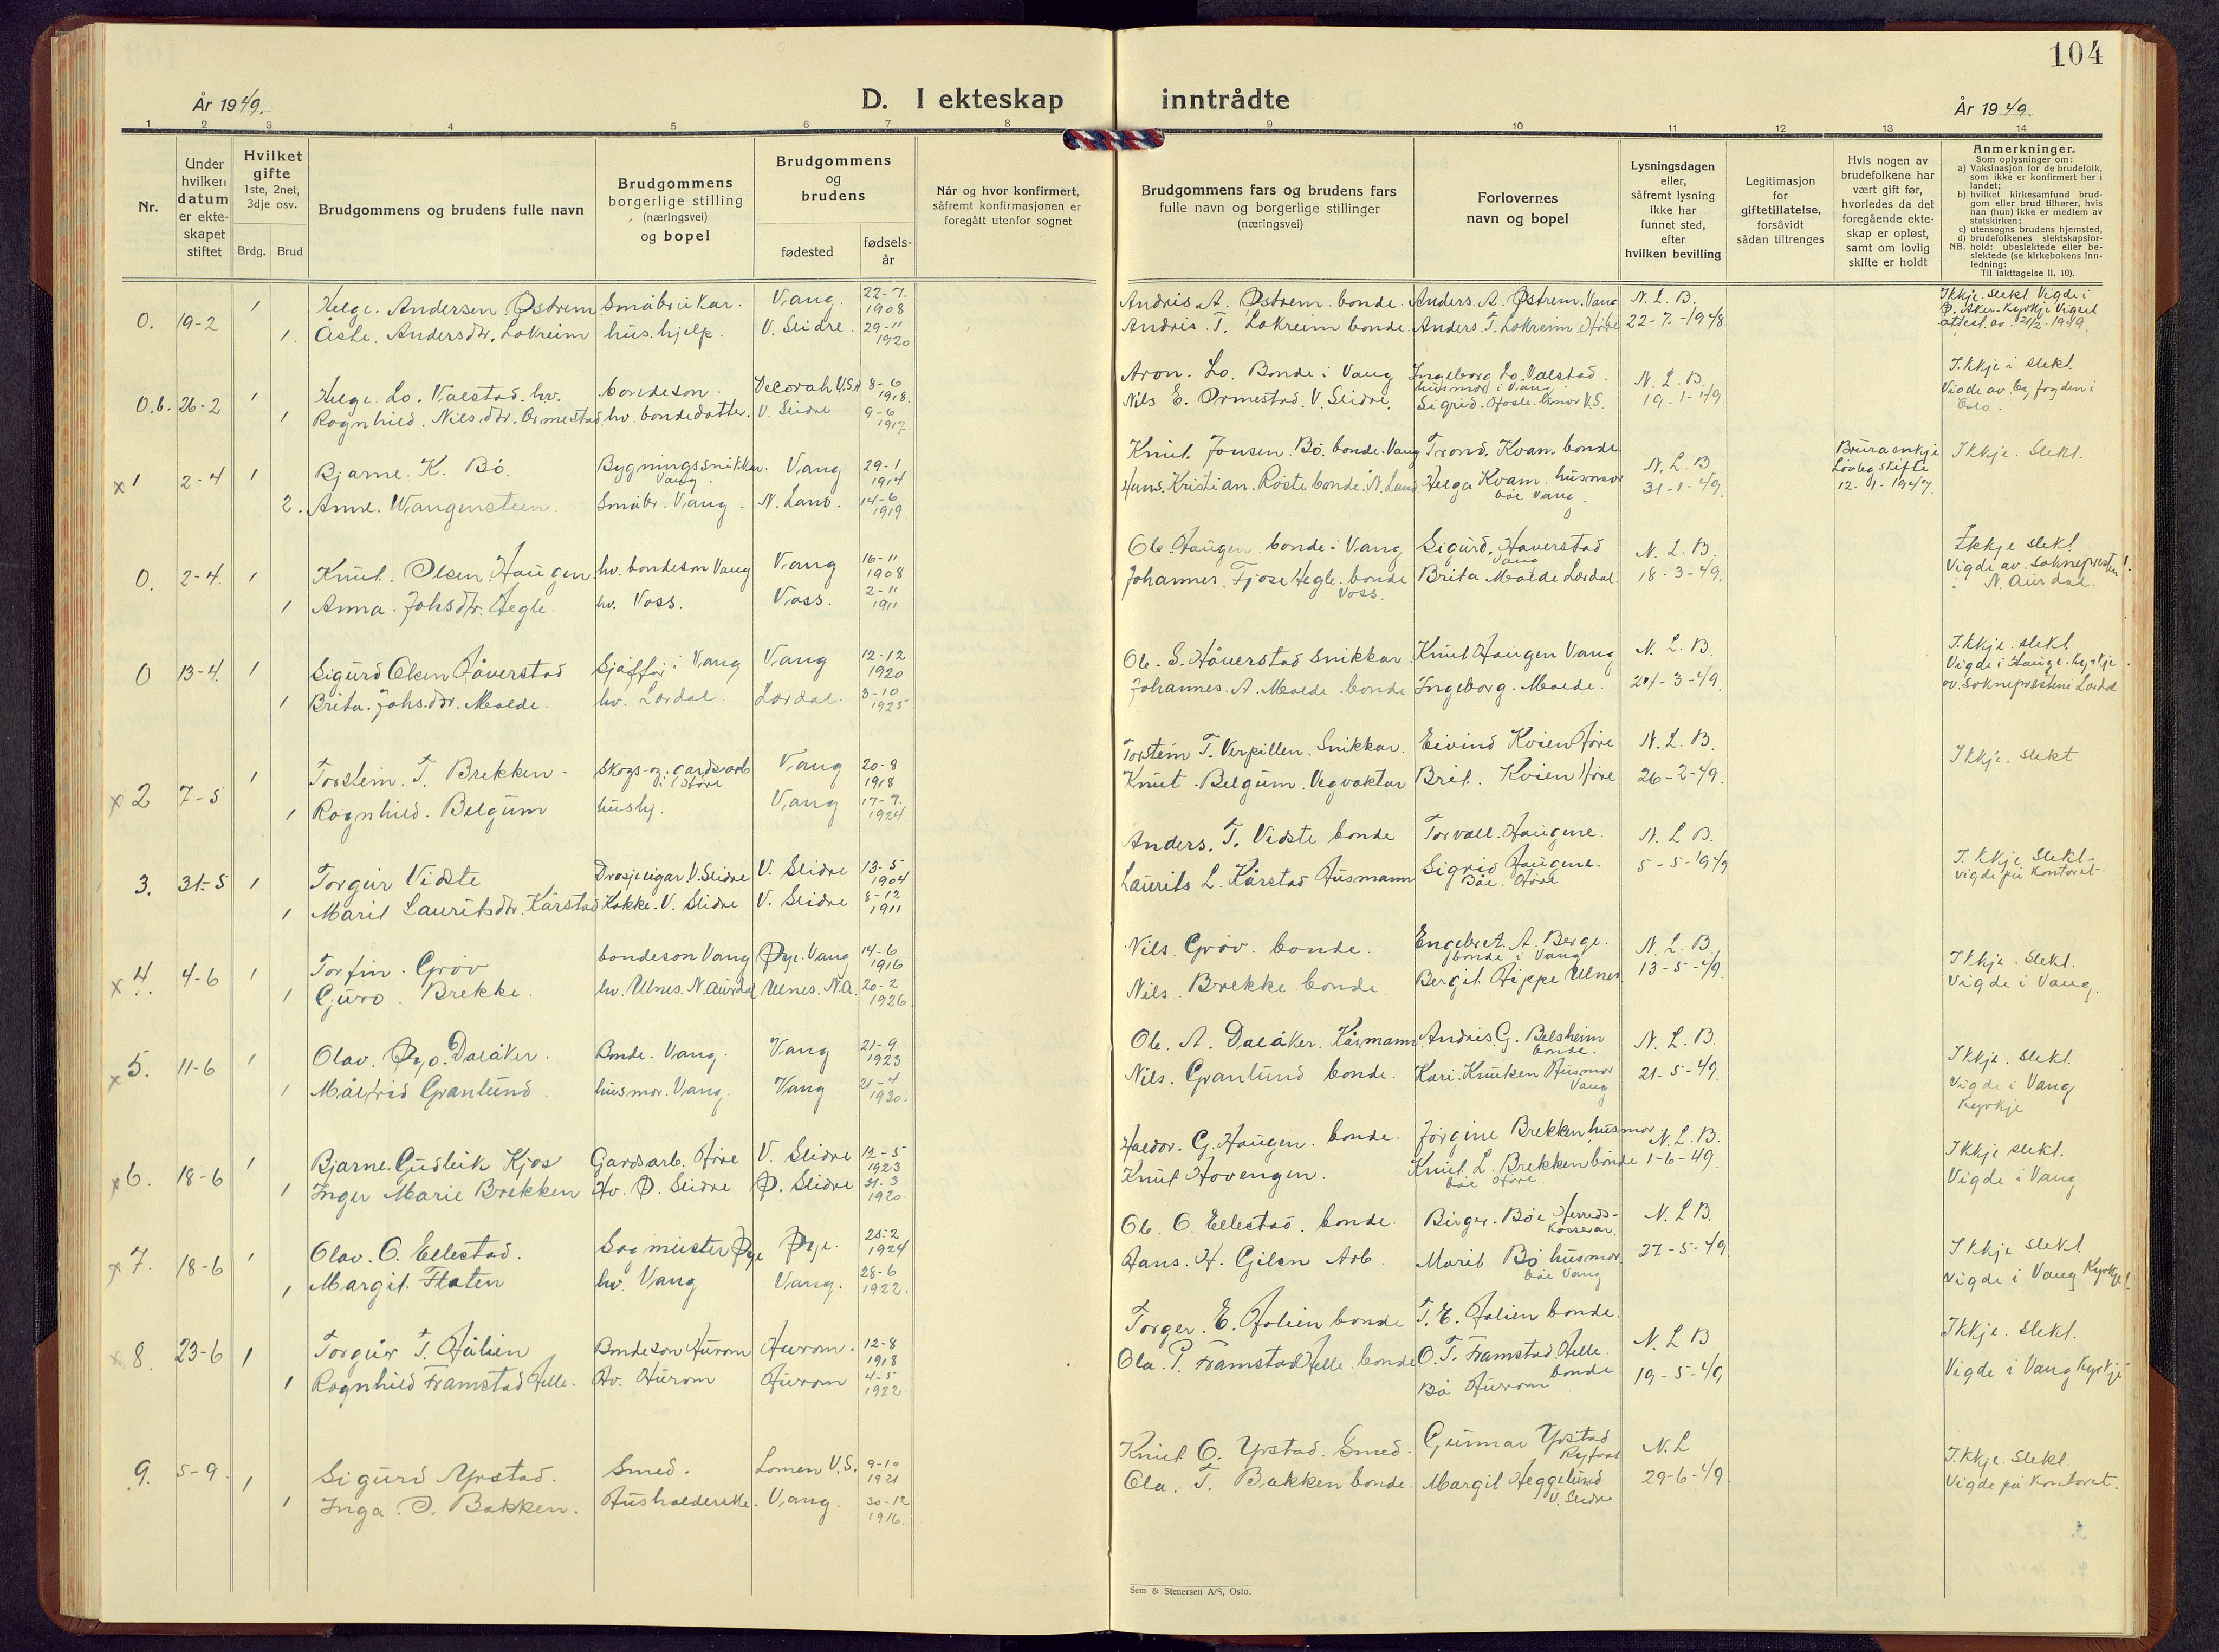 104
År 1949.
D. I ekteskap inntrådte
År 1949.
1 2 3 4 5 6 7 8 9 10 11 12 13 14
Nr.
Under hvilken datum er ekte-skapet stiftet
Hvilket gifte
1ste, 2net, 3dje osv.
Brdg. Brud
Brudgommens og brudens fulle navn
Brudgommens borgerlige stilling (næringsvei) og bopel
Brudgommens og brudens
fødested
fødsels-år
Når og hvor konfirmert, såfremt konfirmasjonen er foregått utenfor sognet
Brudgommens fars og brudens fars fulle navn og borgerlige stillinger (næringsvei)
Forlovernes navn og bopel
Lysningsdagen eller, såfremt lysning ikke har funnet sted, efter hvilken bevilling
Legitimasjon for giftetillatelse, forsåvidt sådan tiltrenges
Hvis nogen av brudefolkene har vært gift før, hvorledes da det foregående ekte-skap er opløst, samt om lovlig skifte er holdt
Anmerkninger.
Som oplysninger om:
a) Vaksinasjon for de brudefolk, som ikke er konfirmert her i landet;
b) hvilket kirkesamfund brud-gom eller brud tilhører, hvis han (hun) ikke er medlem av statskirken;
c) utensogns brudens hjemsted,
d) brudefolkenes slektskapsfor-
NB. hold: ubeslektede eller be-slektede (se kirkebokens Inn-ledning:
Til iakttagelse II. 10).
0. 19-2 1 Helge. Andersen Østrem Småbrukar. Vang. 22-7. 1908 Andris A. Østrem. bonde. Anders. A. Østrem. Vang N. L. B. Ikkje. slekt Vigde i
1. Åste. Andersdtr. Lokreim hus. hjelp. V. Slidre. 29-11 1920 Andris. T. Lokreim bonde. Anders. T. Lokreim. Høre 22-7-1948 Ø. Aker. Kyrkje Vigsel
attest av. 21/2-1949.
0.b. 26-2 1 Helge. Lo. Valstad. hv. bondeson. Decorah U.S.A 8-6 1918. Aron. Lo. Bonde i Vang Ingeborg Lo. Valstad. husmor i Vang. N. L. B. I. kkje i slekt.
1 Rognhild. Nilsdtr. Ormestad. hv. bondedotter. V. Slidre 9-6 1917. Nils E. Ormestad. V. Slidre. Sigrid. V.S. 19-1-49 Vigde av. by fogden i
Oslo.
x 1 2-4 1 Bjarne. K. Bö. Bygningssnikkar. Vang Vang 29-1 1914 Knut. Jonsen. Bö. bonde. Vang Trond. Kvam. bonde N. L. B Brura enkje Ikkje. slekt.
2. Anne. Wangensteen. Småbr. Vang. N. Land. 14-6 1919. Hans. Kristian. Röste bonde. N. Land Helga Kvam. husmor båe Vang. 31-1-49. Lovleg skifte 12-1-1947.
0. 2-4. 1 Knut. Olsen Haugen. hv. bondeson Vang Vang 16-11 1908 Ole. Haugen. bonde i Vang Sigurd. Haverstad Vang N. L. B. Ikkje slekt
1 Anna. Johsdtr. Hegle. hv. Voss. Voss. 2-11 1911 Johannes. Fjose Hegle. bonde Voss. Brita Molde Lærdal. 18-3-49. Vigde av. sokneprest
i N. Aurdal.
0 13-4. 1 Sigurd Olsen Håverstad Sjåffør i Vang Vang 12-12 1920 Ole. S. Håverstad snikkar. Knut Haugen Vang N. L. B. I.kkje. slekt
1 Brita. Johs.dtr. Molde. hv. Lærdal. Lærdal. 3-10 1925 Johannes. A. Molde. bonde Ingeborg. Molde. 24-3-49. Vigde i Hauge. Kyrkje.
av. Soknepresten i Lærdal
x 2 7-5 1 Torstein. T. Brekken. Skogs- og gardsarb i Høre Vang 20-8 1918 Torstein T. Verpillen. Snikkar. Eivind Kvien Høre N. L. B. Ikkje. slekt
1 Rognhild. Belgum hushj. Vang 17-7. 1924 Knut. Belgum. Vegvaktar Brit. Kvien Høre 26-2-49.
3. 31-5 1 Torgur Vidste Drosjeeigar. V. Slidre V. Slidre 13-5 1904 Anders. T. Vidste bonde Torvall. Haugene. N. L. B. I. kkje slekt-
1 Marit Lauritsdtr. Kårstad Kokke. V. Slidre V. Slidre 8-12 1911 Laurits L. Kårstad Husmann Sigrid Haugene. Båe. Høre 5-5-1949 vigde på kontoret-
x 4. 4-6 1 Torfin. Gröv bondeson Vang Øye. Vang 14-6 1916 Nils. Gröv. bonde. Engebret. A. Berge. bonde i Vang N. L. B. Ikkje. slekt.
1 Guro. Brekke. hv. Ulnes. N. Aurdal Ulnes. N.A. 20-2 1926 Nils. Brekke bonde Bergit. Hippe Ulnes. 13-5-49. Vigde i Vang.
x 5. 11-6 1 Olav. Øyo. Dalåker. Bonde. Vang. Vang 21-9 1923 Ole. A. Dalåker. Kårmann Andris. G. Belsheim bonde. N. L. B. Ikkje. slekt.
1 Målfrid Granlund. husmor. Vang. Vang 21-4 1930. Nils. Granlund bonde. Kari. Knutsen Husmor Vang 21-5-49. Vigde i Vang
Kyrkje
x 6. 18-6 1 Bjarne. Gudleik Kjos Gardsarb. Høre V. Slidre 12-5 1923 Haldor. G. Haugen. bonde. Jørgine Brekken husmor. N. L. B. Ikkje slekt.
1 Inger Marie Brekken Hv. Ø. Slidre Ø. Slidre 31-3 1920. Knut Hovengen. Knut. L. Brekken bonde båe Høre. 1-6-49. Vigde i Vang
x 7. 18-6 1 Olav. O. Ellestad. Sagmeister Øye Øye. 25-2 1924 Ole. O. Ellestad. bonde. Birger. Böe Herreds-kasserar N. L B. Ikkje slekt
1 Margit. Flaten hv. Vang Vang. 28-6 1922. Hans. H. Gilen Arb. Marit Bö husmor. båe Vang 27-5-49. Vigde i Vang Kyrkje!
x 8. 23-6 1 Torgur T. Hålien Bondeson Hurom Hurom. 12-8 1918 Torger. E. Holien bonde T. E. Holien bonde. N. L B Ikkje. slekt.
1 Rognhild Framstad Helle. Hv. Hurom Hurom 4-5 1922. Ola. P. Framstad Helle. bonde O. T. Framstad. Helle. bonde Bå Hurom 19-5-49 Vigde i Vang Kyrkje
9. 5-9. 1 Sigurd Ystad. Smed. Lomen V.S. 9-10 1921 Knut O. Ystad. Smed. Gunnar Ystad Ryfoss N. L I.kkje. slekt.
1 Inga. O. Bakken. Husholderske. Vang. 30-12 1916. Ola. T. Bakken bonde. Margit Heggelund V. Slidre 29-6-49. Vigde på kontoret.
Sem & Stenersen A/S, Oslo.